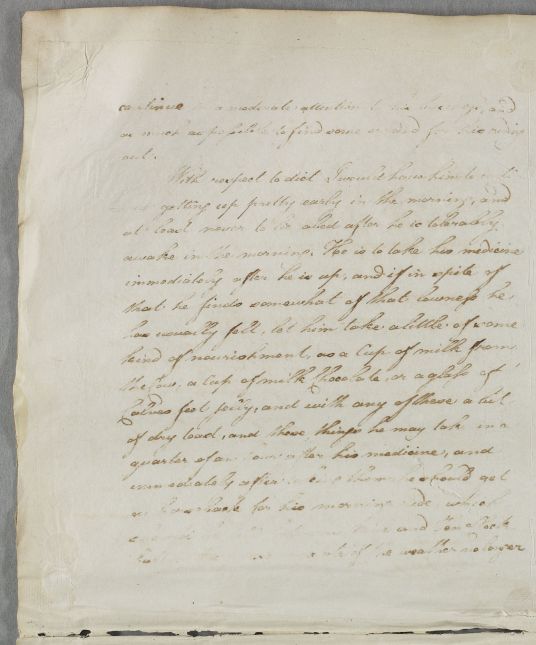 continue in a moderate attention to his business, and
as much as possible to find some errand for his riding
out.
With respect to diet I would have him to
getting up pretty early in the morning, and
at least never to lie abed after he is tolerably
awake in the morning. He is to take his medicine
immediately after he is up, and if in spite of
that he finds somewhat of that lowness he
has usually felt, let him take a little of some
kind of nourishment, as a Cup of milk from
the Cow, a Cup of milk Chocolate, or a glass of
Calves foot jelly, and with any of these a bit
of dry toast, and these things he may take in a
quarter of an hour after his medicine, and
immediately after taking them he should get
on horseback for his morning ride, which
and ten o'Clock
of the weather no longer